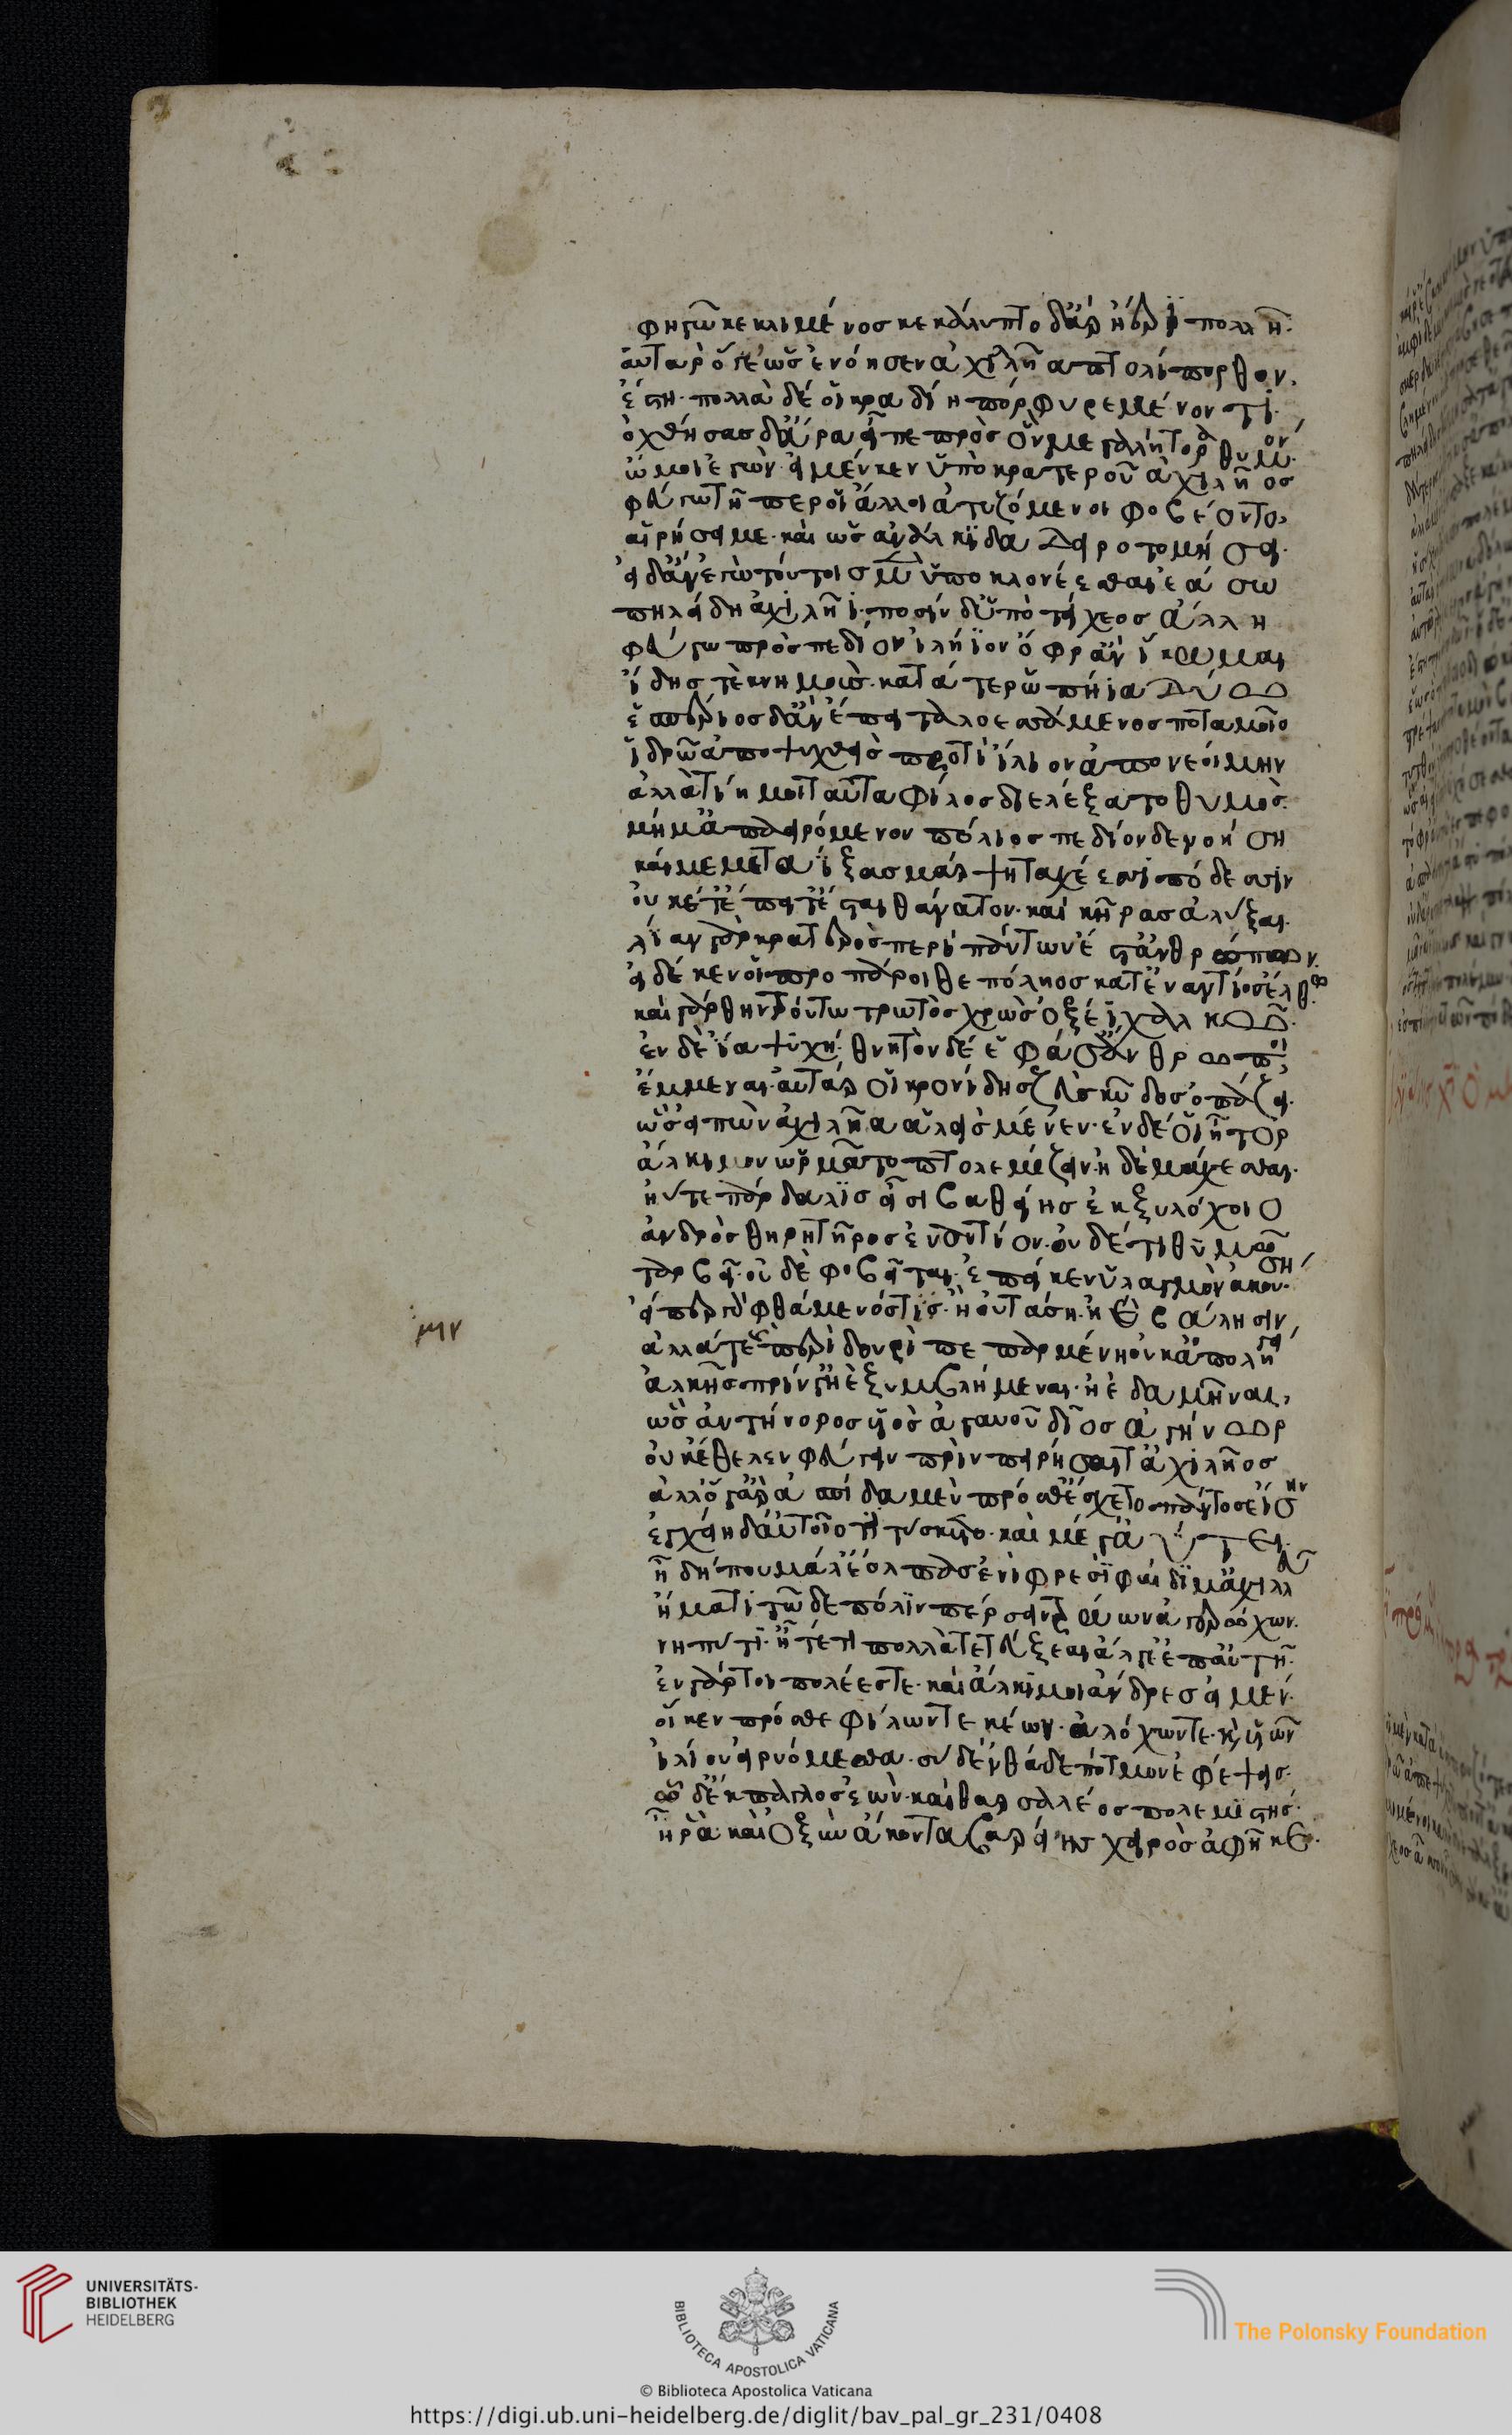 φηγῶ κεκλιμένοσ κεκάλυπτο δἄρ ἠέρι πολλῆ·
αὐταρ ὅγεὡσ ἐνόησεν ἀχιλῆα πτολίπορθον.
ἔστη· πολλὰ δέ οἱ κραδίη πόρφυρε μένοντι·
ὀχθήσασ δἄρα εἶπε πρὸσ ὃν μεγαλήτορα θυμόν·
ὤ μοι ἐγών· εἰ μέν κεν ὑπὸ κρατεροῦ ἀχιλῆοσ
φεύγω τῆ περ οἱ ἄλλοι ἀτυζόμενοι φοβέοντο,
αἱρήσει με· καὶ ὡσ ανάλκιδα δειροτομήσει·
εἰ δἂν ἐγὼ τούτουσ μὲν ὑποκλονέεσθαι ἐάσω
πηλείδη ἀχιλῆι· ποσὶν δ ὑπὸ τείχεοσ ἄλλη
φεύγω πρὸσ πεδίον ἰλήϊον ὄφρἂν ἵκωμαι
ἴδησ τὲ κνημοὺσ· κατά τε ῥωπήια δύω
ἑσπέριοσ δἂν ἔπειτα λοεσσάμενοσ ποταμοῖο
ἱδρῶ ἀποψυχθεὶσ προτὶ ἴλιον ἀπονεοίμην
ἀλλὰ τίη μοι ταῦτα φίλοσ διελέξατο θυμὸσ·
μή μἀπαειρόμενον πόλιοσ πεδίονδε νοήση
καί με μεταΐξασ μάρψη ταχέεσσι πόδεσσιν
οὐκέτἔπειτἔσται θάνατον· καὶ κῆρασ ἀλύξαι·
λίαν γὰρ κρατερὸσ περὶ πάντων ἔστἀνθρώπων.
εἰ δέ κεν οἱ προπάροιθε πόληοσ κατἐναντίοσ ἔλθω
καὶ γάρ θην τούτω τρωτὸσ χρὼσ ὀξέϊ χαλκῶ·
ἐν δὲ ἴα ψυχή· θνητὸν δέ ἑ φάσἄνθρωποι
ἔμμεναι· αὐτάρ οἱ κρονίδησ ζεὺσ κῦδοσ ὀπάζει·
ὡσ εἰπὼν ἀχιλῆα αλεὶσ μένεν· ἐν δέ οἱ ἦτορ
ἄλκιμον ὡρμᾶτο πτολεμίζειν· ἠδὲ μάχεσθαι·
ἠύτε πάρδαλισ εἶσι βαθείησ ἐκ ξυλόχοιο
ἀνδρὸσ θηρητῆροσ ἐναντίον· οὐδέ τι θυμῶ
ταρβεῖ· οὐδὲ φοβεῖται· ἐπεί κεν ὑλαγμὸν ἀκούση
εἴπερ γὰρ φθάμενόσ τισ· ἢ οὐτάση· ἠὲ βάλησιν,
ἀλλά τε περὶ δουρὶ πεπαρμένη οὐκ ἀπολήγει
ἀλκῆσ πρίν γἠὲ ξυμβλήμεναι· ἠὲ δαμῆναι,
ὡσ ἀντήνοροσ υἱὸσ ἀγαυοῦ δῖοσ ἀγήνωρ
οὐκ ἔθελεν φεύγειν πρὶν πειρήσαιτἀχιλῆοσ
ἀλλὅγἂρ ἀσπίδα μὲν πρόσθἔσχετο πάντοσἐίσην
ἐγχείη δαὐτοῖο τιτύσκετο· καὶ μέγἀύτει
ἦ δή που μάλἔολπασ ἐνὶ φρεσὶ φαίδιμἀχιλλεῦ
ἤματι τῶδε πόλιν πέρσειν τρώων ἀγερώχων·
νηπύτι· ἦ τἔτι πολλὰ τετεύξεται ἄλγἐπαὐτῆ·
ἐν γάρ τοι πολέεστε· καὶ ἄλκιμοι ἄνδρεσ εἰμέν·
οἵ κεν πρόσθε φίλων τε κέων· ἀλόχων τε· κὶ υἱῶν
ἴλιον εἰρυόμεσθα· σὺ δἐνθάδε πότμον ἐφέψεισ·
ὧδἔκπαγλοσ ἐὼν· καὶ θαρσαλέοσ πολεμιστήσ·
ἦ ῥὰ· καὶ ὀξὺν ἄκοντα βαρείησ χειρὸσ ἀφῆκε·
UNIVERSITÄTS-
BIBLIOTHEK
HEIDELBERG
BIBLIOTECA APOSTOLICA VATICANA
The Polonsky Foundation
© Biblioteca Apostolica Vaticana
https://digi.ub.uni-heidelberg.de/diglit/bav_pal_gr_231/0408